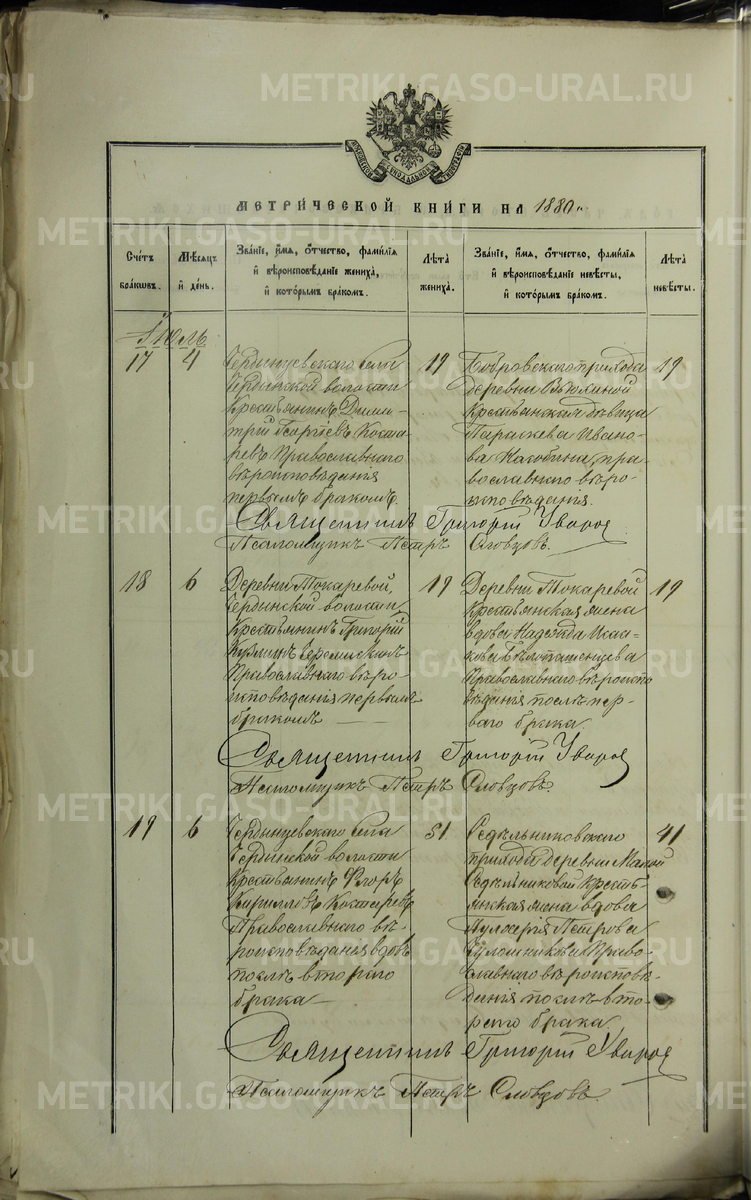 МЕТРИ́ЧЕСКОЙ КНИ́ГИ НА 1880 г.
Сче́тъ бра́кωвъ.
Мѣ́сяцъ и҆ де́нь.
Зва́нїе, и҆́мѧ, ѻ҆́тчество, фами́лїѧ и҆ вѣроисповѣ́данїе жениха̀, и҆ кото́рымъ бра́комъ.
Лѣ́та жениха̀.
Зва́нїе, и҆́мѧ, ѻ҆́тчество, фами́лїѧ и҆ вѣроисповѣ́данїе невѣ́сты, и҆ кото́рымъ бра́комъ.
Лѣ́та невѣ́сты.
Іюль
17
4
Чердынцевскаго села
Чердынской волости
Крестьянинъ Дими-
трій Георгіевъ Коста-
ревъ Православнаго
вѣроисповѣданія
первымъ бракомъ.
19
Бобровскаго прихода
деревни
крестьянская дѣвица
Параскева Ивано-
ва пра-
вославнаго вѣро-
исповѣданія.
19
Священникъ Григорій Уваров
Псаломщикъ Петръ Словцовъ.
18
6
Деревни Токаревой,
Чердынской волости
Крестьянинъ Григорій
Православнаго вѣро-
исповѣданія первымъ
бракомъ
19
Деревни Токаревой
крестьянская жена
вдова Надежда Исаа-
кова
Православнаго вѣроиспо
вѣданія послѣ пер-
ваго брака
19
Священникъ Григорій Уваров
Псаломщикъ Петръ Словцовъ.
19
6
Чердынцевскаго села
Чердынской волости
Крестьянинъ Флоръ
Кирилловъ Костаревъ
Православнаго вѣ-
роисповѣданія вдовъ
послѣ втораго
брака
51
Седѣльниковскаго
прихода деревни Малой
Седѣльниковой Кресть-
янская жена вдова
Пулхерія Петрова
Право-
славнаго вѣроисповѣ-
данія послѣ вто-
раго брака
41
Священникъ Григорій Уваров
Псаломщикъ Петръ Словцовъ.
METRIKI.GASO-URAL.RU